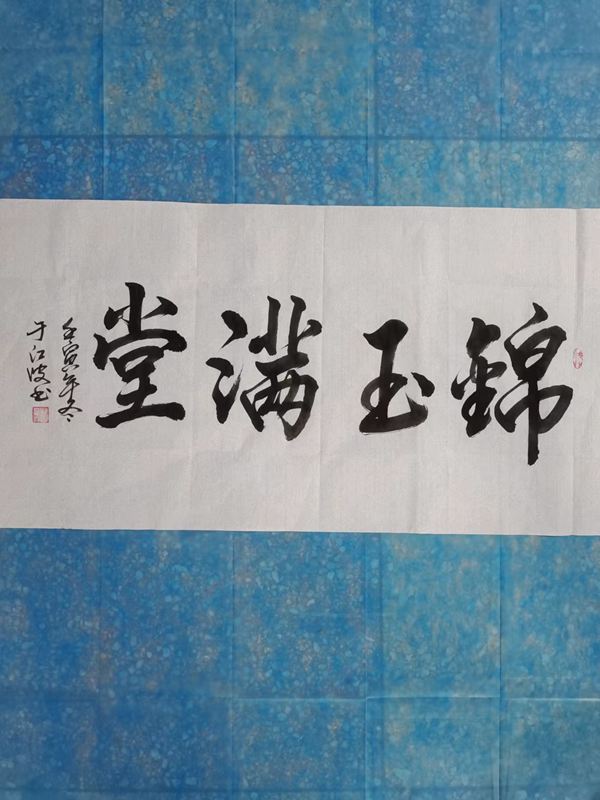 錦玉满堂
壬寅年冬
于江波书